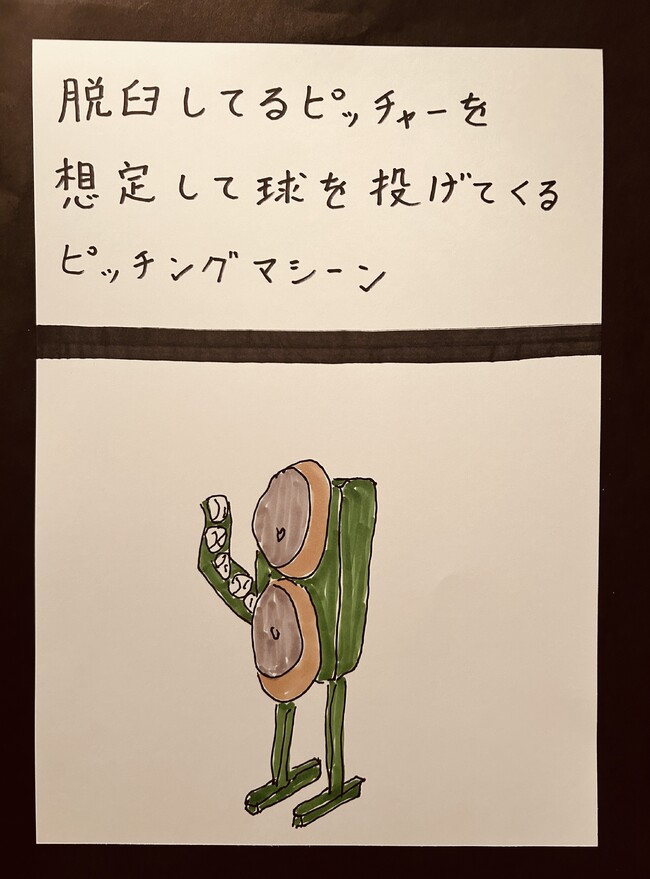 脱臼してるピッチャーを
想定して球を投げてくる
ピッチングマシーン